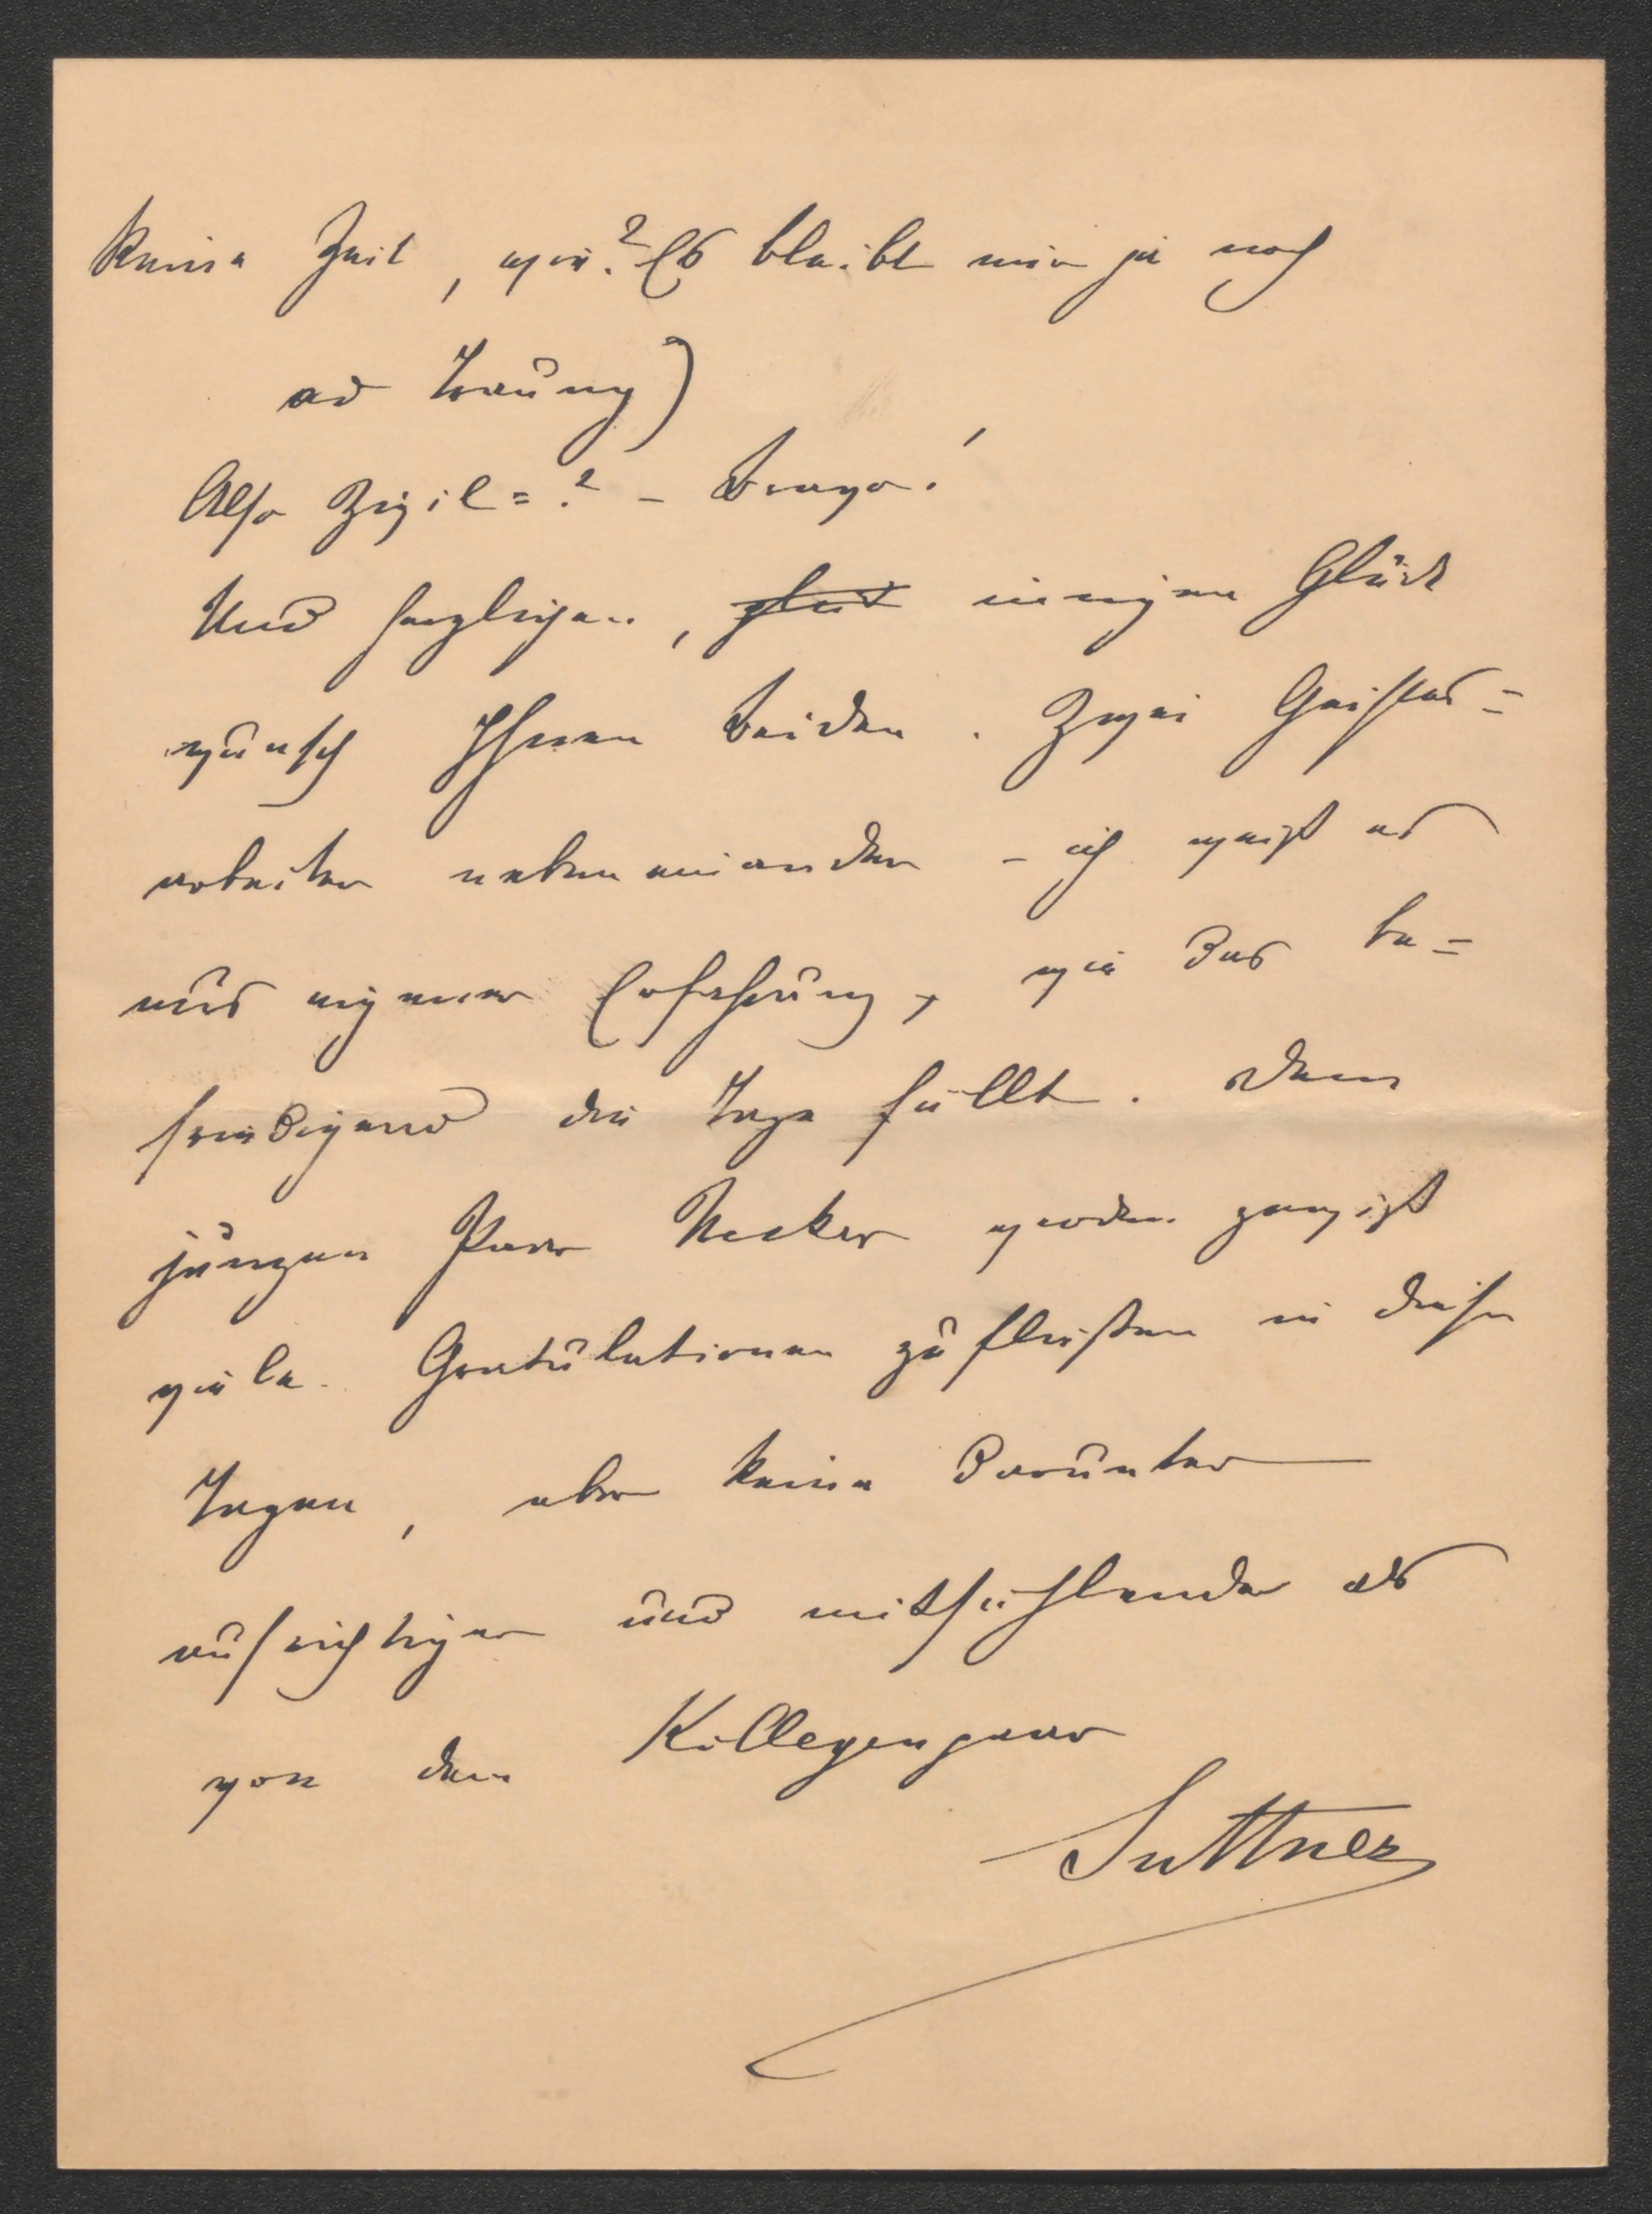 keine Zeit, wie? Es bleibt mir ja noch
ad Trauung)
Also Zivil=? – Bravo!
Und herzlichen, innigen Glück
wunsch Ihnen Beiden. Zwei Geistes=
arbeiter nebeneinander – ich weiß es
aus eigener Erfahrung, wie das be=
friedigend die Tage füllt. Dem
jungen Paar Necker werden gewiß
viele Gratulationen zufließen in diesen
Tagen, aber keine darunter
aufrichtiger und mitfühlender als
von dem Kollegenpaar
Suttner